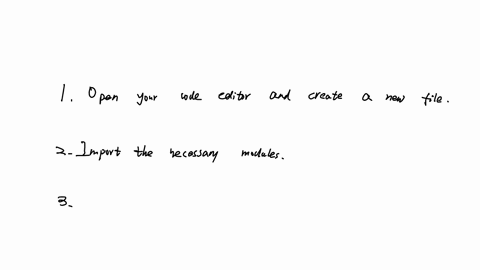 1. Open your code editor and create a new file.
2. Import the necessary modules.
3.